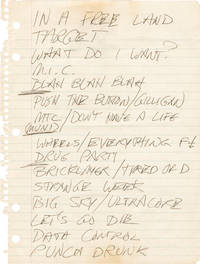 IN A FREE LAND
TARGET
WHAT DO I WANT?
M.I.C.
BLAH BLAH BLAH
PUSH THE BUTTON/GILLIGAN
MTC/DON'T HAVE A LIFE
(MIND)
WHEELS/EVERYTHING F
DRUG PARTY
BRICKLAYER/TIRED OF D
STRANGE WEEK
BIG SKY/ULTRACORE
LET'S GO DIE
DATA CONTROL
PUNCH DRUNK